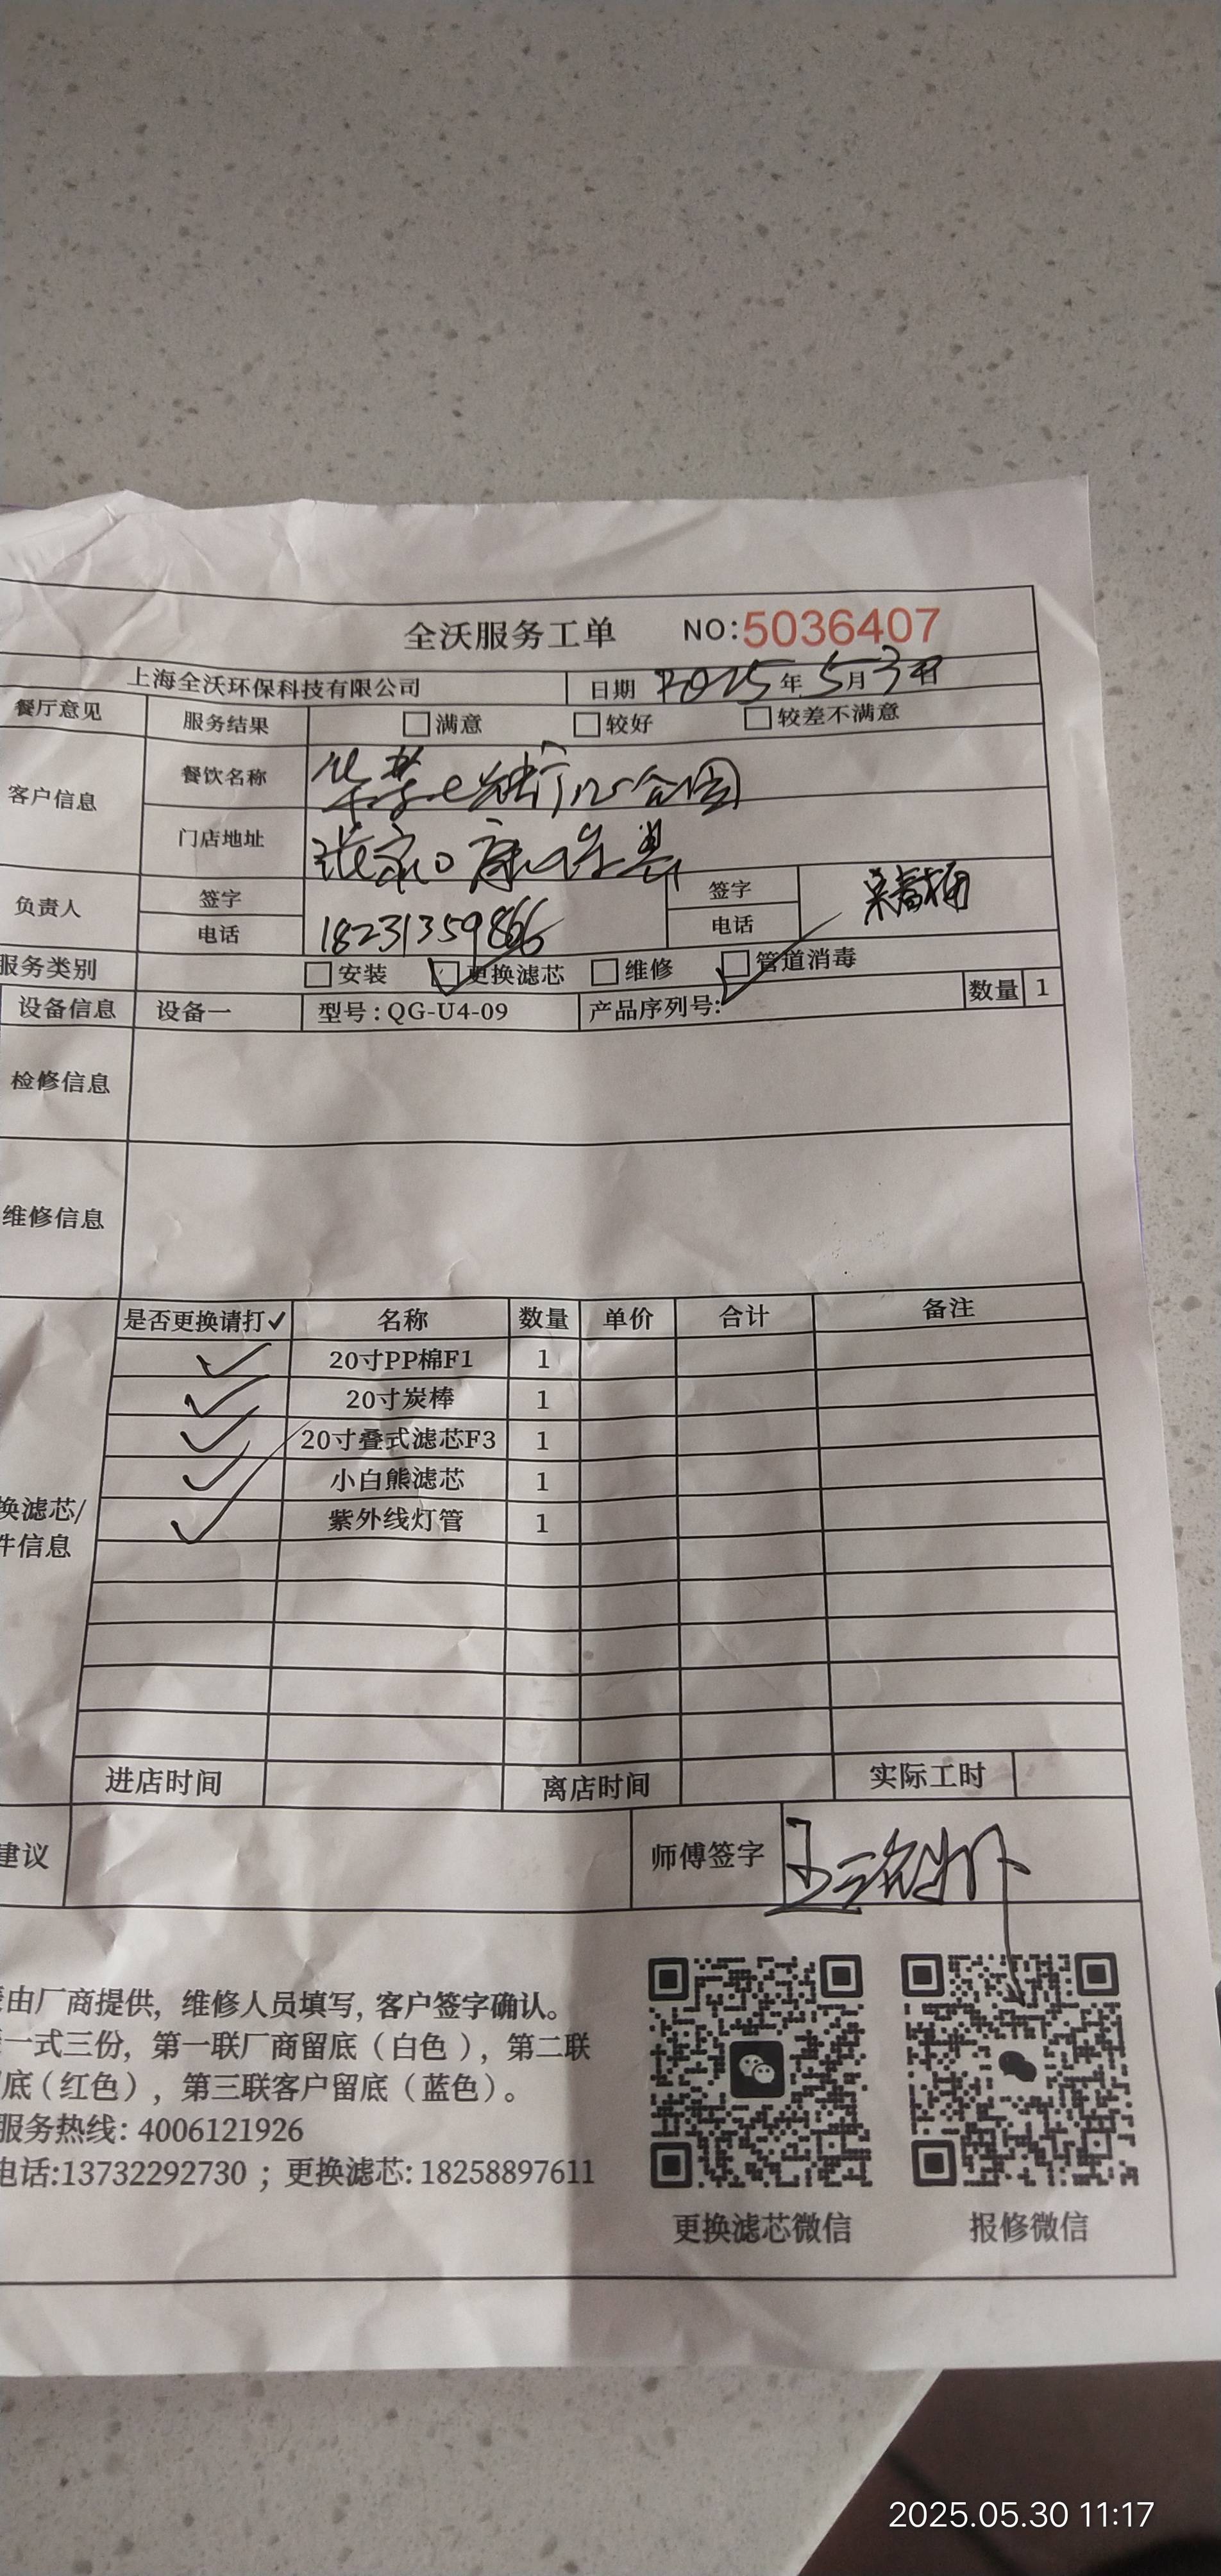 全沃服务工单 NO:5036407
上海全沃环保科技有限公司 日期 2025年5月3日
餐厅意见 服务结果 满意 较好 较差不满意
客户信息 餐饮名称
门店地址 张家口康保县
负责人 签字 签字
电话 18231359866 电话
服务类别 安装 更换滤芯 维修 管道消毒
设备信息 设备一 型号:QG-U4-09 产品序列号: 数量 1
检修信息
维修信息
是否更换请打✓ 名称 数量 单价 合计 备注
✓ 20寸PP棉F1 1
✓ 20寸炭棒 1
✓ 20寸叠式滤芯F3 1
✓ 小白熊滤芯 1
✓ 紫外线灯管 1
换滤芯/
件信息
进店时间 离店时间 实际工时
建议 师傅签字
由厂商提供, 维修人员填写, 客户签字确认。
一式三份, 第一联厂商留底（白色）, 第二联
底（红色）, 第三联客户留底（蓝色）。
服务热线: 4006121926
电话:13732292730 ; 更换滤芯: 18258897611
更换滤芯微信 报修微信
2025.05.30 11:17